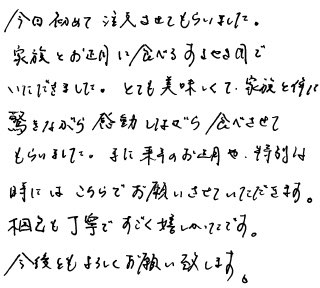 今回初めて注文させてもらいました。
家族とお正月に食べるおせち用で
いただきました。とても美味しくて、家族と共に
驚きながら感動しながら食べさせて
もらいました。また来年のお正月や、特別な
時にはこちらでお願いさせていただきます。
梱包も丁寧ですごく嬉しかったです。
今後ともよろしくお願い致します。